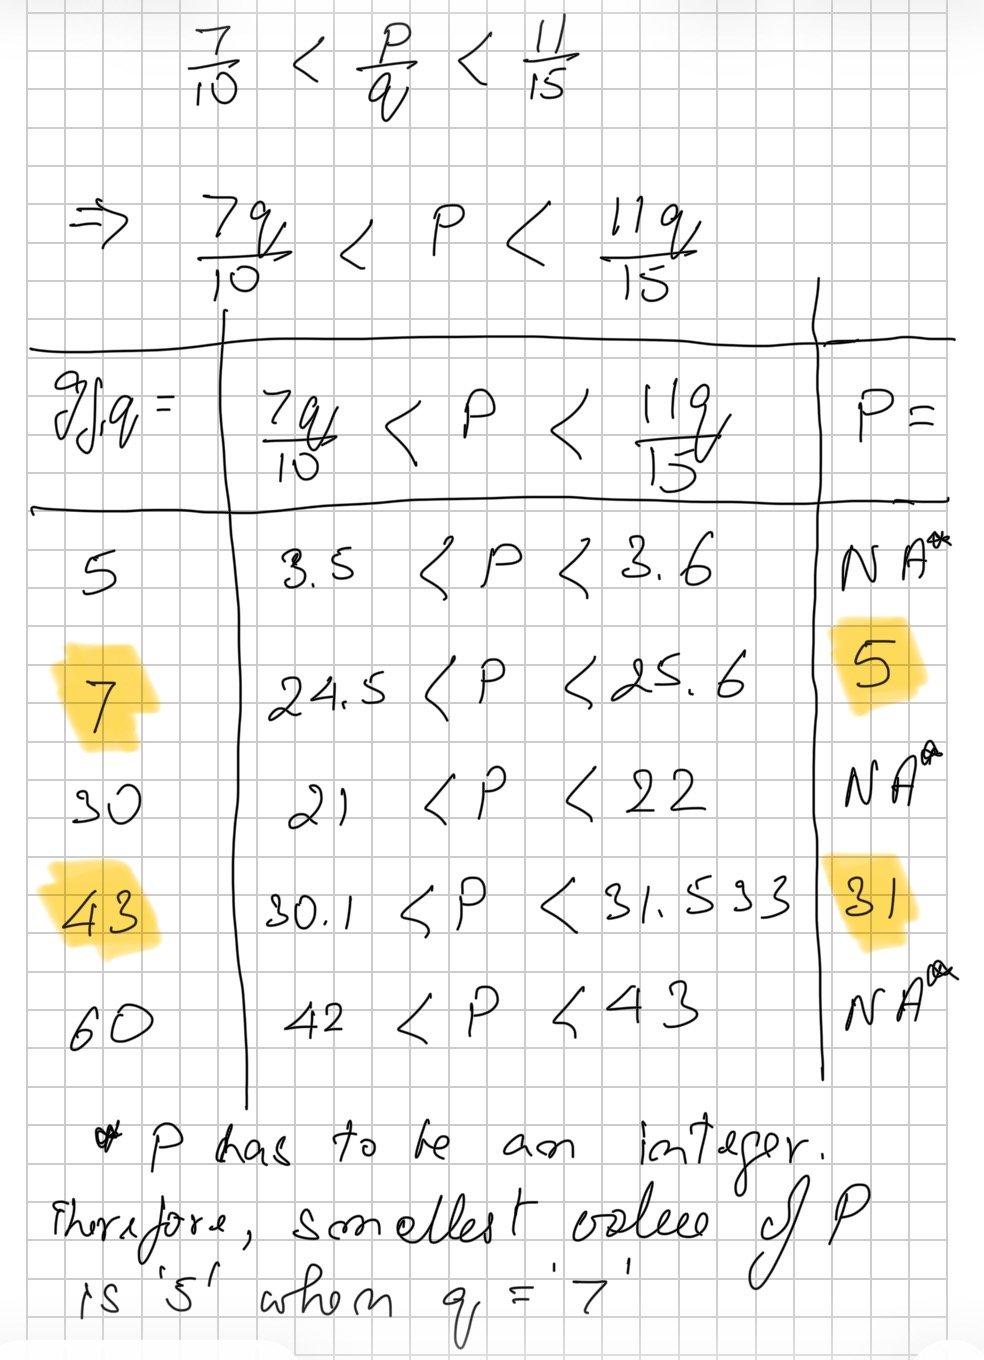 7/10 < P/q < 11/15
⇒ 7q/10 < P < 11q/15
If, q = | 7q/10 < P < 11q/15 | P =
5 | 3.5 < P < 3.6 | NA*
7 | 24.5 < P < 25.6 | 5
30 | 21 < P < 22 | NA*
43 | 30.1 < P < 31.533 | 31
60 | 42 < P < 43 | NA*
* P has to be an integer.
Therefore, smallest value of P
is '5' when q = '7'